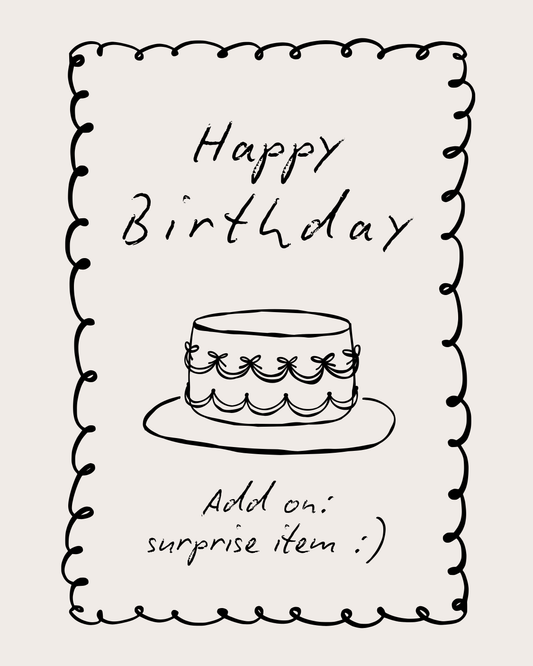 Happy
Birthday
Add on:
surprise item :)